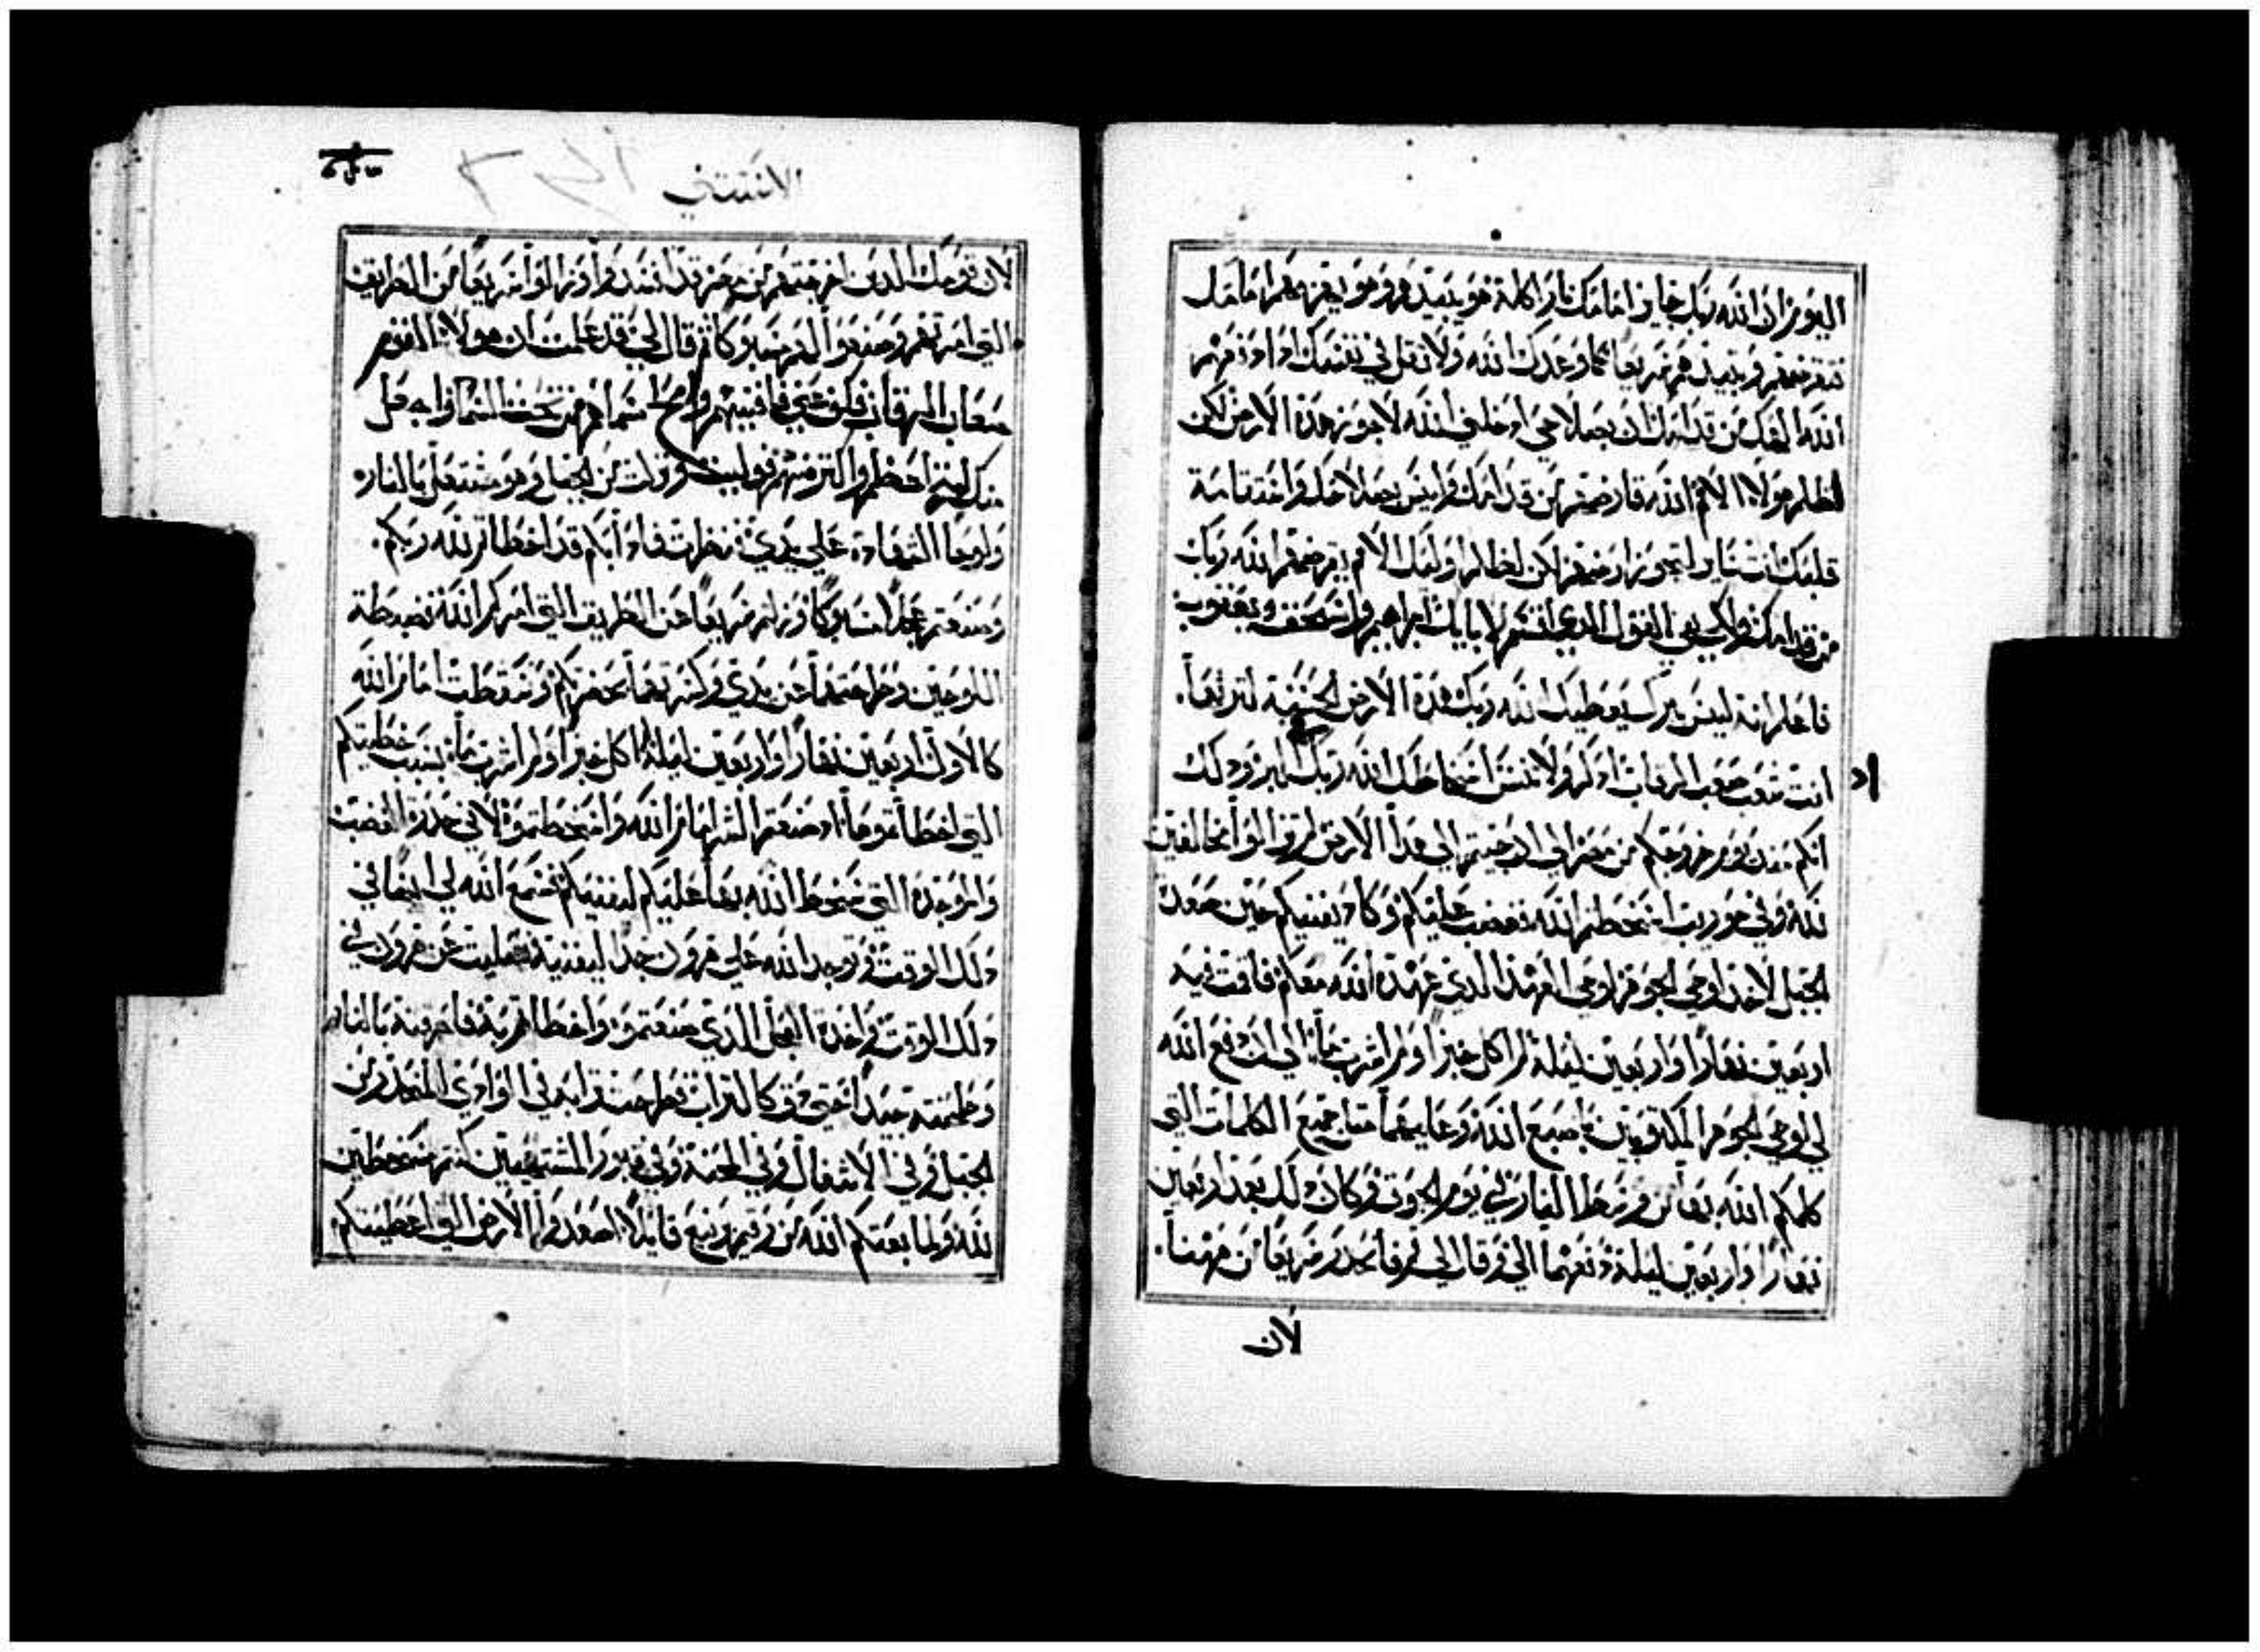 اليوم ان الله ربك جايز امامك نار اكلة هو يبيدهم وهو يهزمهم امامك
وتبيدهم سريعا كما وعدك الله ولا تقل في نفسك اذا
الله الهك من قدامك ان بصلاحي ادخلني الله لاحوز هذه الارض لكن
لظلم هولاء الامم الله قارضهم من قدامك وليس بصلاحك واستقامة
قلبك انت لتحوز ارضهم لكن لظلم اوليك الامم يقرضهم الله ربك
من قدامك ولكي يفي القول الذي اقسم لابايك ابراهيم واسحق ويعقوب
فاعلم انه ليس ببرك يعطيك الله ربك هذه الارض الحسنة لترثها.
انت شعب صعب الرقاب اذكر ولا تنس اسخاطك الله ربك في البر وذلك
انكم منذ يوم خروجكم من مصر الى ان جيتم الى هذا الارض لم تزالوا مخالفين
لله وفي حوريب اسخطتم الله فغضب عليكم وكاد يفنيكم حين صعدت
الجبل لاخذ لوحي الجوهر لوحي العهد الذي عهده الله معكم فاقمت فيه
اربعين نهارا واربعين ليلة لم اكل خبزا ولم اشرب ماء الى ان دفع الله
لي لوحي الجوهر المكتوبين باصبع الله وعليهما جميع الكلمات التي
كلمكم الله بها من وسط النار في يوم الجوق وكان ذلك بعد اربعين
نهارا واربعين ليلة دفعهما الي وقال لي قم فانحدر سريعا من ههنا.
لان
الاستثني
لان قومك الذين اخرجتهم من مصر قد افسدوا وزالوا سريعا من الطريق
التي امرتهم وصنعوا لهم مسبوكا ثم قال لي قد علمت ان هولاء القوم
صعاب الرقاب فكف عني فافنيهم وامحا اسماهم من تحت السماء واجعل
منك امة اعظم واكثر منهم فوليت ونزلت من الجبل وهو مشتعل بالنار
ولوحا الشهادة على يدي فنظرت فاذا بكم قد اخطاتم لله ربكم.
وصنعتم عجلا مسبوكا وزلتم سريعا عن الطريق التي امركم الله فضبطت
اللوحين وطرحتهما عن يدي وكسرتهما بحضرتكم وسقطت امام الله
كالاول اربعين نهارا واربعين ليلة لم اكل خبزا ولم اشرب ماء بسبب خطيتكم
التي اخطاتموها اذ صنعتم الشر امام الله واسخطتموه لاني حذرت الغضب
والموجدة التي سخط الله بها عليكم ليفنيكم فسمع الله لي ايضا في
ذلك الوقت وتوجد الله على هرون جدا ليفنيه فصليت عن هرون في
ذلك الوقت واخذت العجل الذي صنعتموه واخطاتم به فاحرقته بالنار
وطحنته جيدا حتى دق كالتراب فطرحت ترابه في الوادي المنحدر من
الجبل وفي الاشتعال وفي المحنة وفي قبور المشتهيين كنتم مسخطين
لله ولما بعثكم الله من رقيم برنيع قايلا اصعدوا الارض التي اعطيتكم